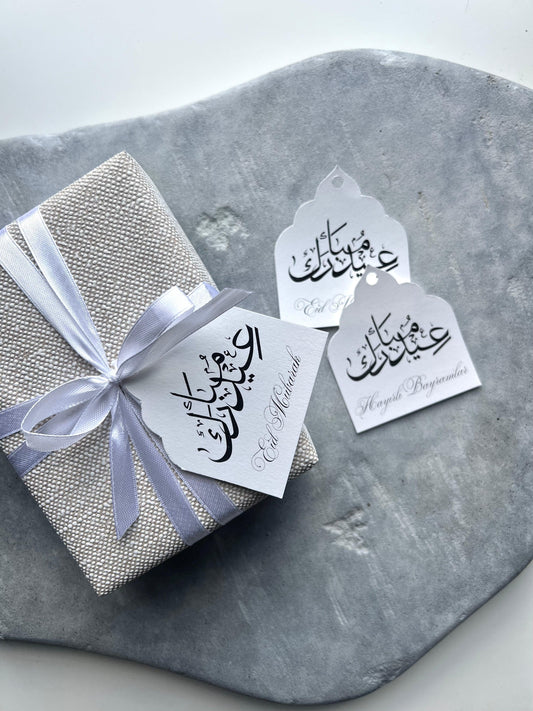 عيد مبارك
Eid Mubarak
عيد مبارك
Eid
عيد مبارك
Hayırlı Bayramlar